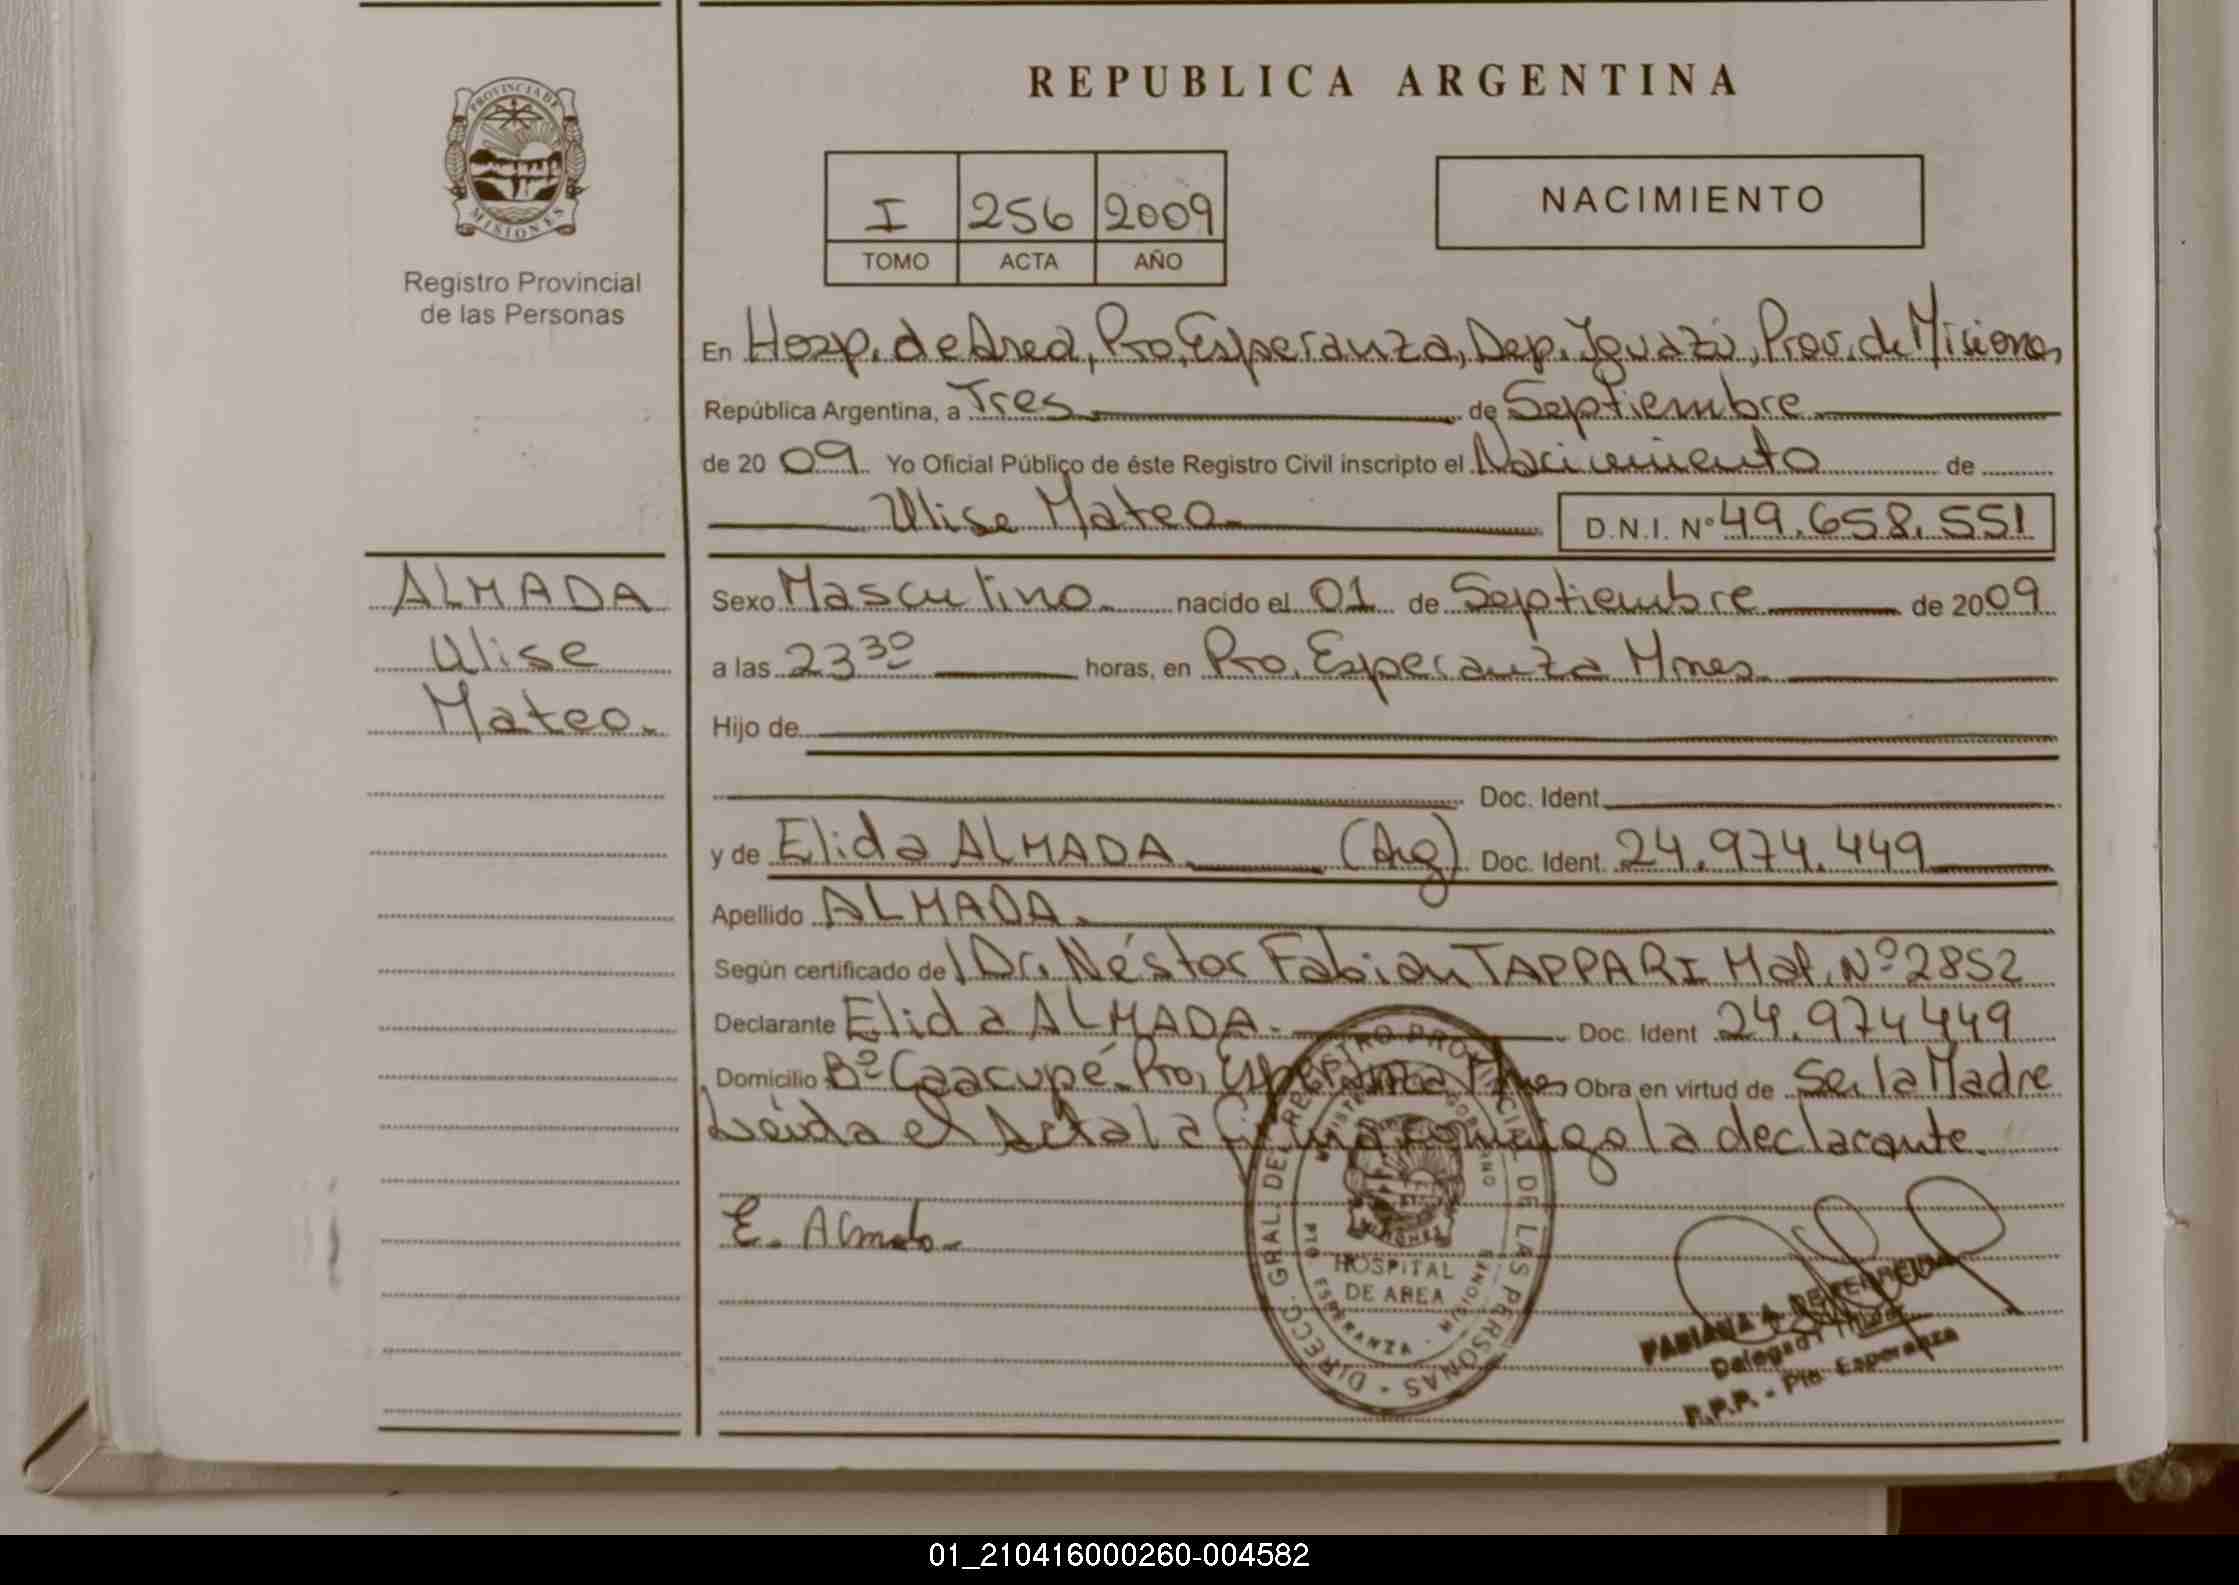 REPUBLICA ARGENTINA
PROVINCIA DE MISIONES
Registro Provincial
de las Personas
I 256 2009
TOMO ACTA AÑO
NACIMIENTO
En Hosp. de Area, Pto. Esperanza, Dep. Iguazú, Prov. de Misiones
República Argentina, a Tres de Septiembre
de 20 09 Yo Oficial Público de éste Registro Civil inscripto el Nacimiento de
Ulise Mateo D.N.I. Nº 49.658.551
ALMADA
Ulise
Mateo.
Sexo Masculino nacido el 01 de Septiembre de 20 09
a las 23 30 horas, en Pto. Esperanza Mnes.
Hijo de
Doc. Ident.
y de Elida ALMADA. (Arg) Doc. Ident. 24.974.449
Apellido ALMADA.
Según certificado del Dr. Néstor Fabian TAPPARI Mat. Nº 2852
Declarante Elida ALMADA. Doc. Ident 24.974449
Domicilio Bº Caacupé Pto. Esperanza Mnes Obra en virtud de Ser la Madre
Leída el Acta la firma conmigo la declarante.
E. Almada
DIRECC. GRAL. DEL REGISTRO PROVINCIAL DE LAS PERSONAS
HOSPITAL
DE AREA
PTO ESPERANZA - MISIONES
FABIANA A. DE FERREIRA
Delegada Titular
R.P.P. - Pto. Esperanza
01_210416000260-004582